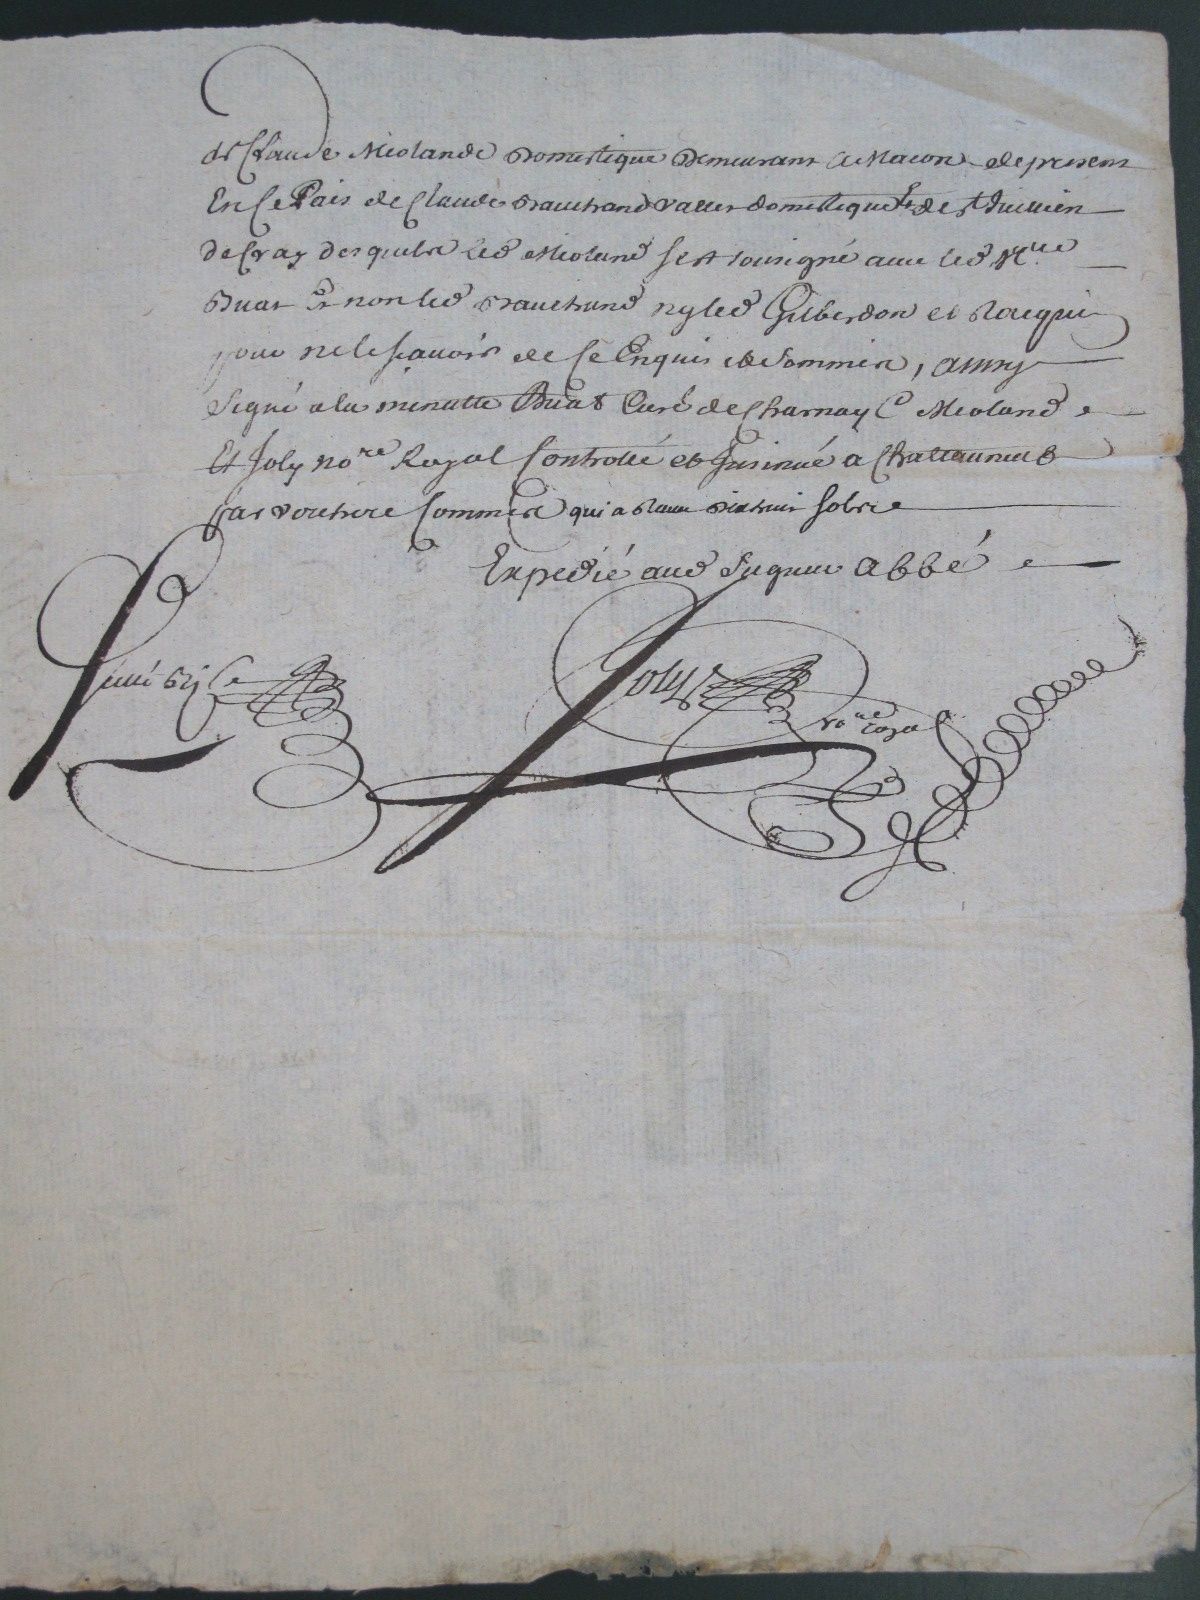 de Claude Miolande domestique demeurant a Macon de present
En Ce Pais de Claude vallet domestique Et de st Jullien
de Cray desquels led Mioland sest sousigné avec led Mre
Buat Et non led ny led Gilberdon et Jacquin
pour ne le scavoir de ce Enquis et sommés, ainsy
signé a la minutte Buat Curé de Charnay C Mioland
Et Joly nore Royal Controllé et Insinué a Chatteauneuf
par Commis qui a
Expedié aud seigneur abbé
Joly
nore royal